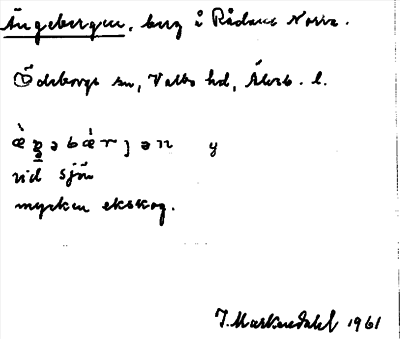 Ängebergen, berg å Rådane Norra.
Ödeborgs sn, Valbo hd, Älvsb. l.
y
vid sjön
mycken ekskog.
J. Markendahl 1961